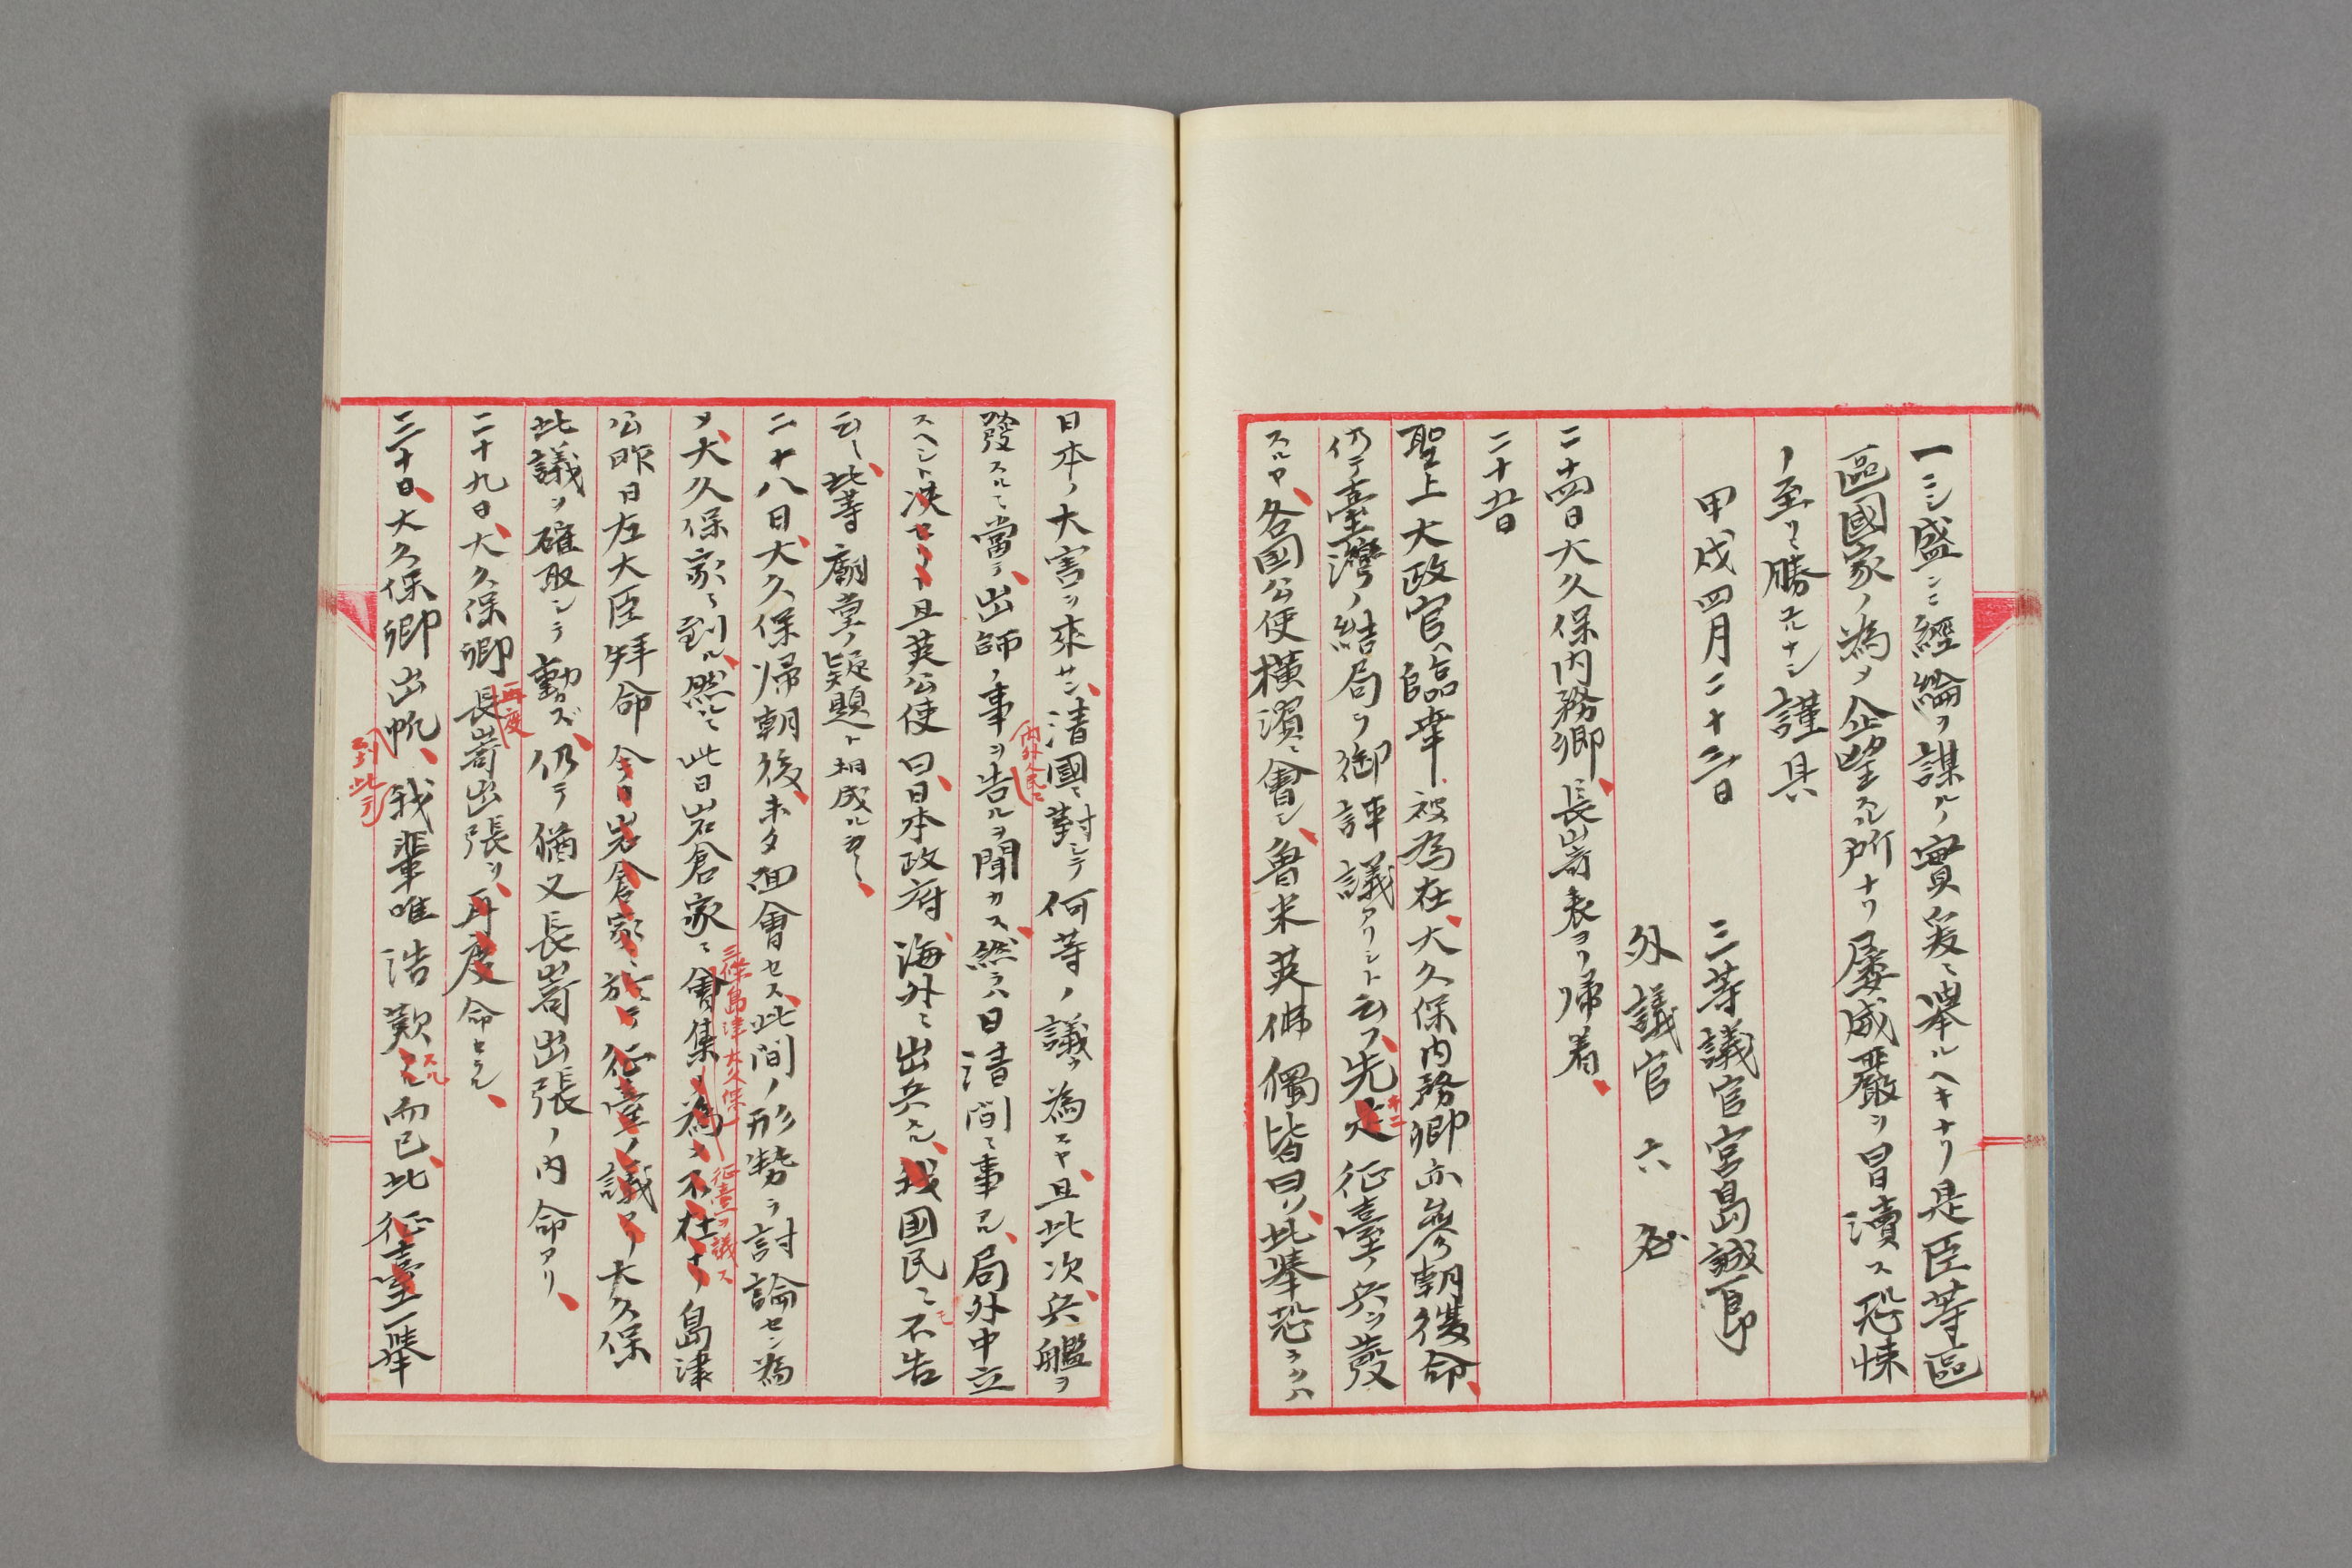 一ニシ盛ンニ經綸ヲ謀ルノ實爰ニ舉ルヘキナリ是臣等區
區國家ノ為メ企望スル所ナリ屡威嚴ヲ冒瀆ス恐悚
ノ至リニ勝ヘルナシ謹具
甲戌四月二十三日
三等議官宮島誠一郎
外議官六名
二十四日大久保内務卿、長嵜表ヨリ帰着、
二十五日
聖上大政官ヘ臨幸被為在、大久保内務卿亦參朝復命、
仍テ臺灣ノ結局ヲ御評議アリシト云フ、先是征臺ノ兵ヲ發
キニ
スルヤ、各国公使横濱ニ會シ、魯米英佛獨皆曰ク、此舉恐ラクハ
日本ノ大害ヲ來サン、清國ニ對シテ何等ノ議ヲ為スヤ、且此次、兵艦ヲ
發スルニ當テ、出師ノ事ヲ告ルヲ聞カス、然ラハ日清間ニ事アル、局外中立
内外人民ニ
スヘシト决セリト且英公使曰、日本政府、海外ニ出兵スル、我国民ニ不告
モ
云々、此等廟堂ノ疑題ト相成ル
二十八日、大久保帰朝後、未タ面會セス、此間ノ形勢ヲ討論セン為
メ、大久保家ニ到ル、然ルニ此日岩倉家ニ會集ノ為メ不在ナリ島津
三條島津大久保
征臺ヲ議ス
公昨日左大臣拜命今日岩倉家ニ於テ征臺ノ議アリ大久保
此議ヲ確取シテ動カズ、仍テ猶又長嵜出張ノ内命アリ、
二十九日、大久保卿長嵜出張ヲ、再度命セラル、
再度
三十日、大久保卿出帆、我輩唯浩歎スル而已、此征臺一舉
到此テ
スル